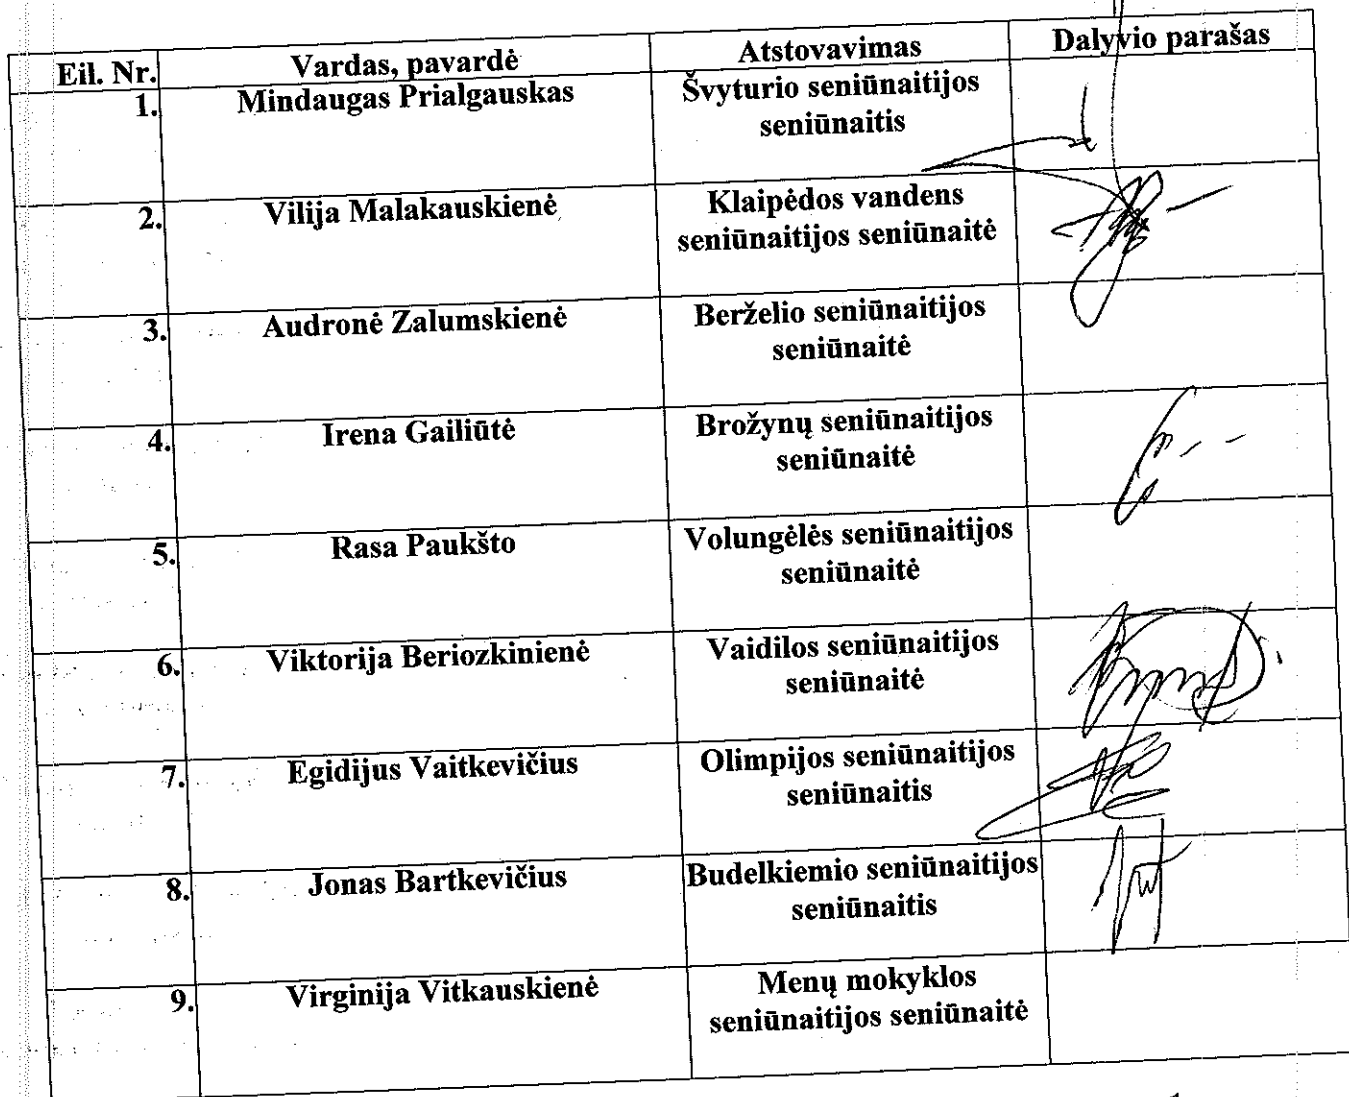 Eil. Nr. Vardas, pavardė Atstovavimas Dalyvio parašas
1. Mindaugas Prialgauskas Švyturio seniūnaitijos
seniūnaitis
2. Vilija Malakauskienė Klaipėdos vandens
seniūnaitijos seniūnaitė
3. Audronė Zalumskienė Berželio seniūnaitijos
seniūnaitė
4. Irena Gailiūtė Brožynų seniūnaitijos
seniūnaitė
5. Rasa Paukšto Volungėlės seniūnaitijos
seniūnaitė
6. Viktorija Beriozkinienė Vaidilos seniūnaitijos
seniūnaitė
7. Egidijus Vaitkevičius Olimpijos seniūnaitijos
seniūnaitis
8. Jonas Bartkevičius Budelkiemio seniūnaitijos
seniūnaitis
9. Virginija Vitkauskienė Menų mokyklos
seniūnaitijos seniūnaitė